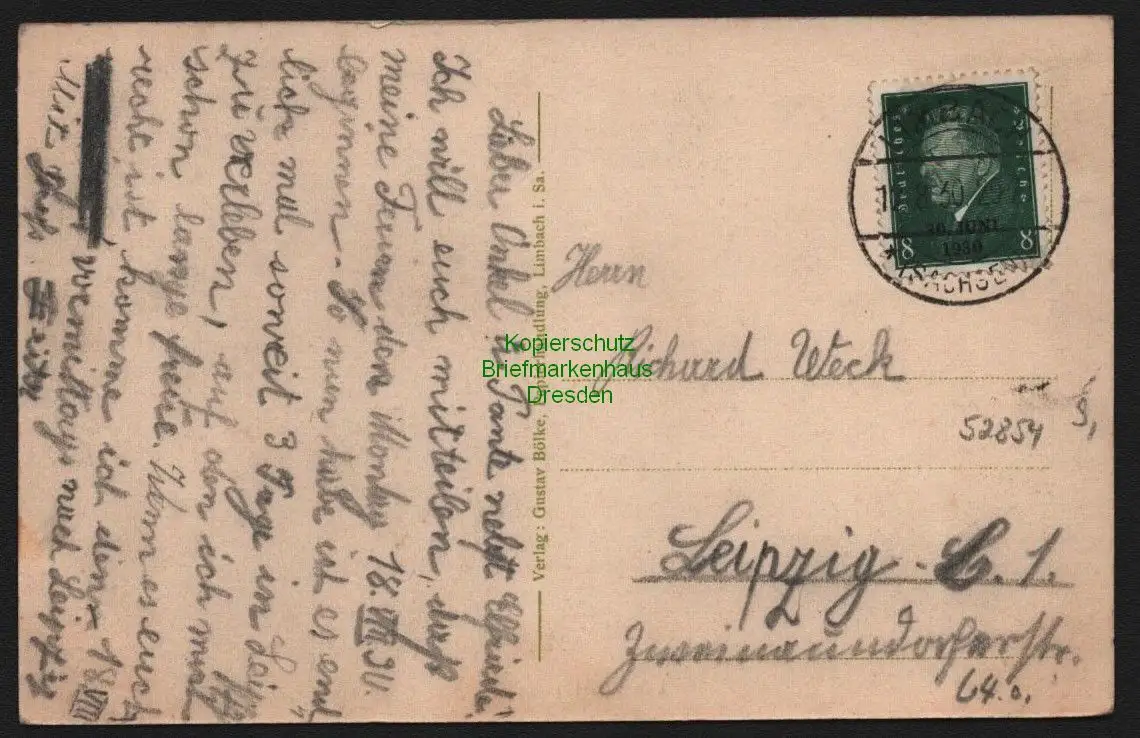 Lieber Onkel u. Tante nebst Elfriede!
Ich will euch mitteilen, daß
meine Ferien den Montag 18.VIII 30.
beginnen. So nun habe ich es end„
lich mal soweit 3 Tage in Leipzig
zu verleben, auf den ich mich
schon lange freue. Wenn es euch
recht ist, komme ich den 18.VIII
vormittags nach Leipzig
Mit Gruß
Verlag: Gustav Bölke, Limbach i. Sa.
Deutsches Reich
8 8
30. JUNI
1930
SACHSEN
Herrn
Richard Weck
52854
Leipzig - C. 1.
Zweinaundorferstr.
64.
Kopierschutz
Briefmarkenhaus
Dresden